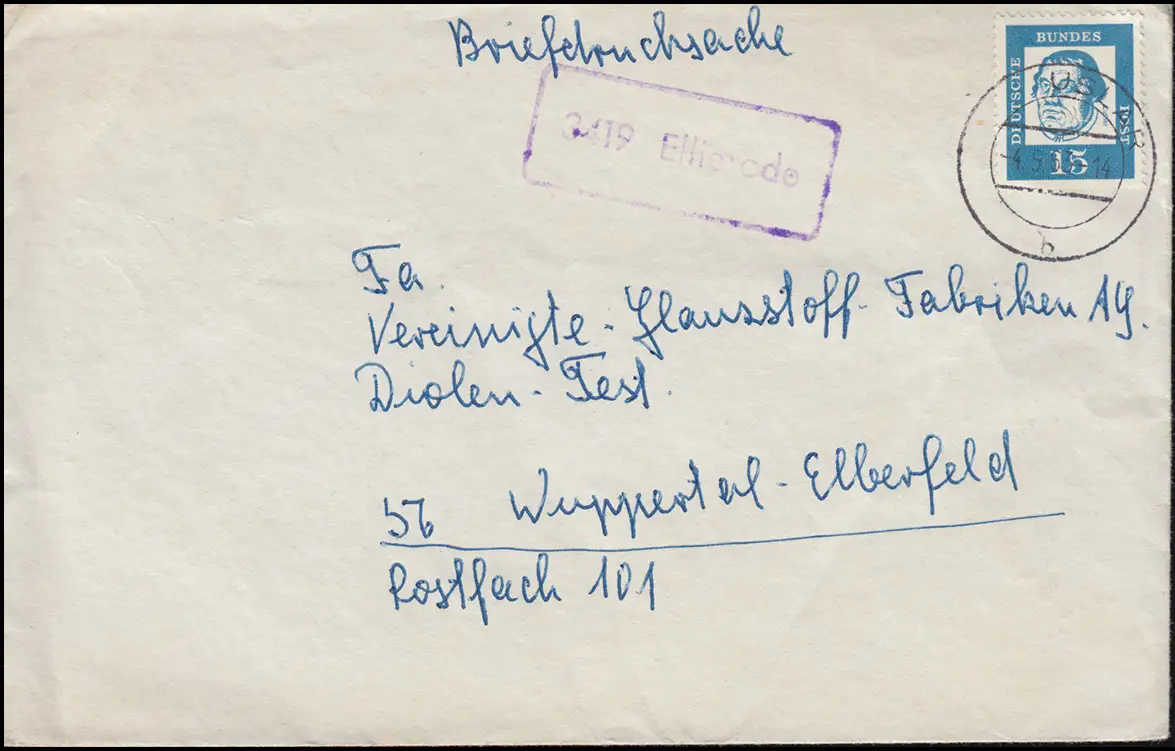 Briefdrucksache
DEUTSCHE
BUNDES
POST
15
USLAR
-4.5.6 -14
b
3419 Ellierode
Fa.
Vereinigte-Glanzstoff-Fabriken AG.
Diolen-Test.
56 Wuppertal-Elberfeld
Postfach 101